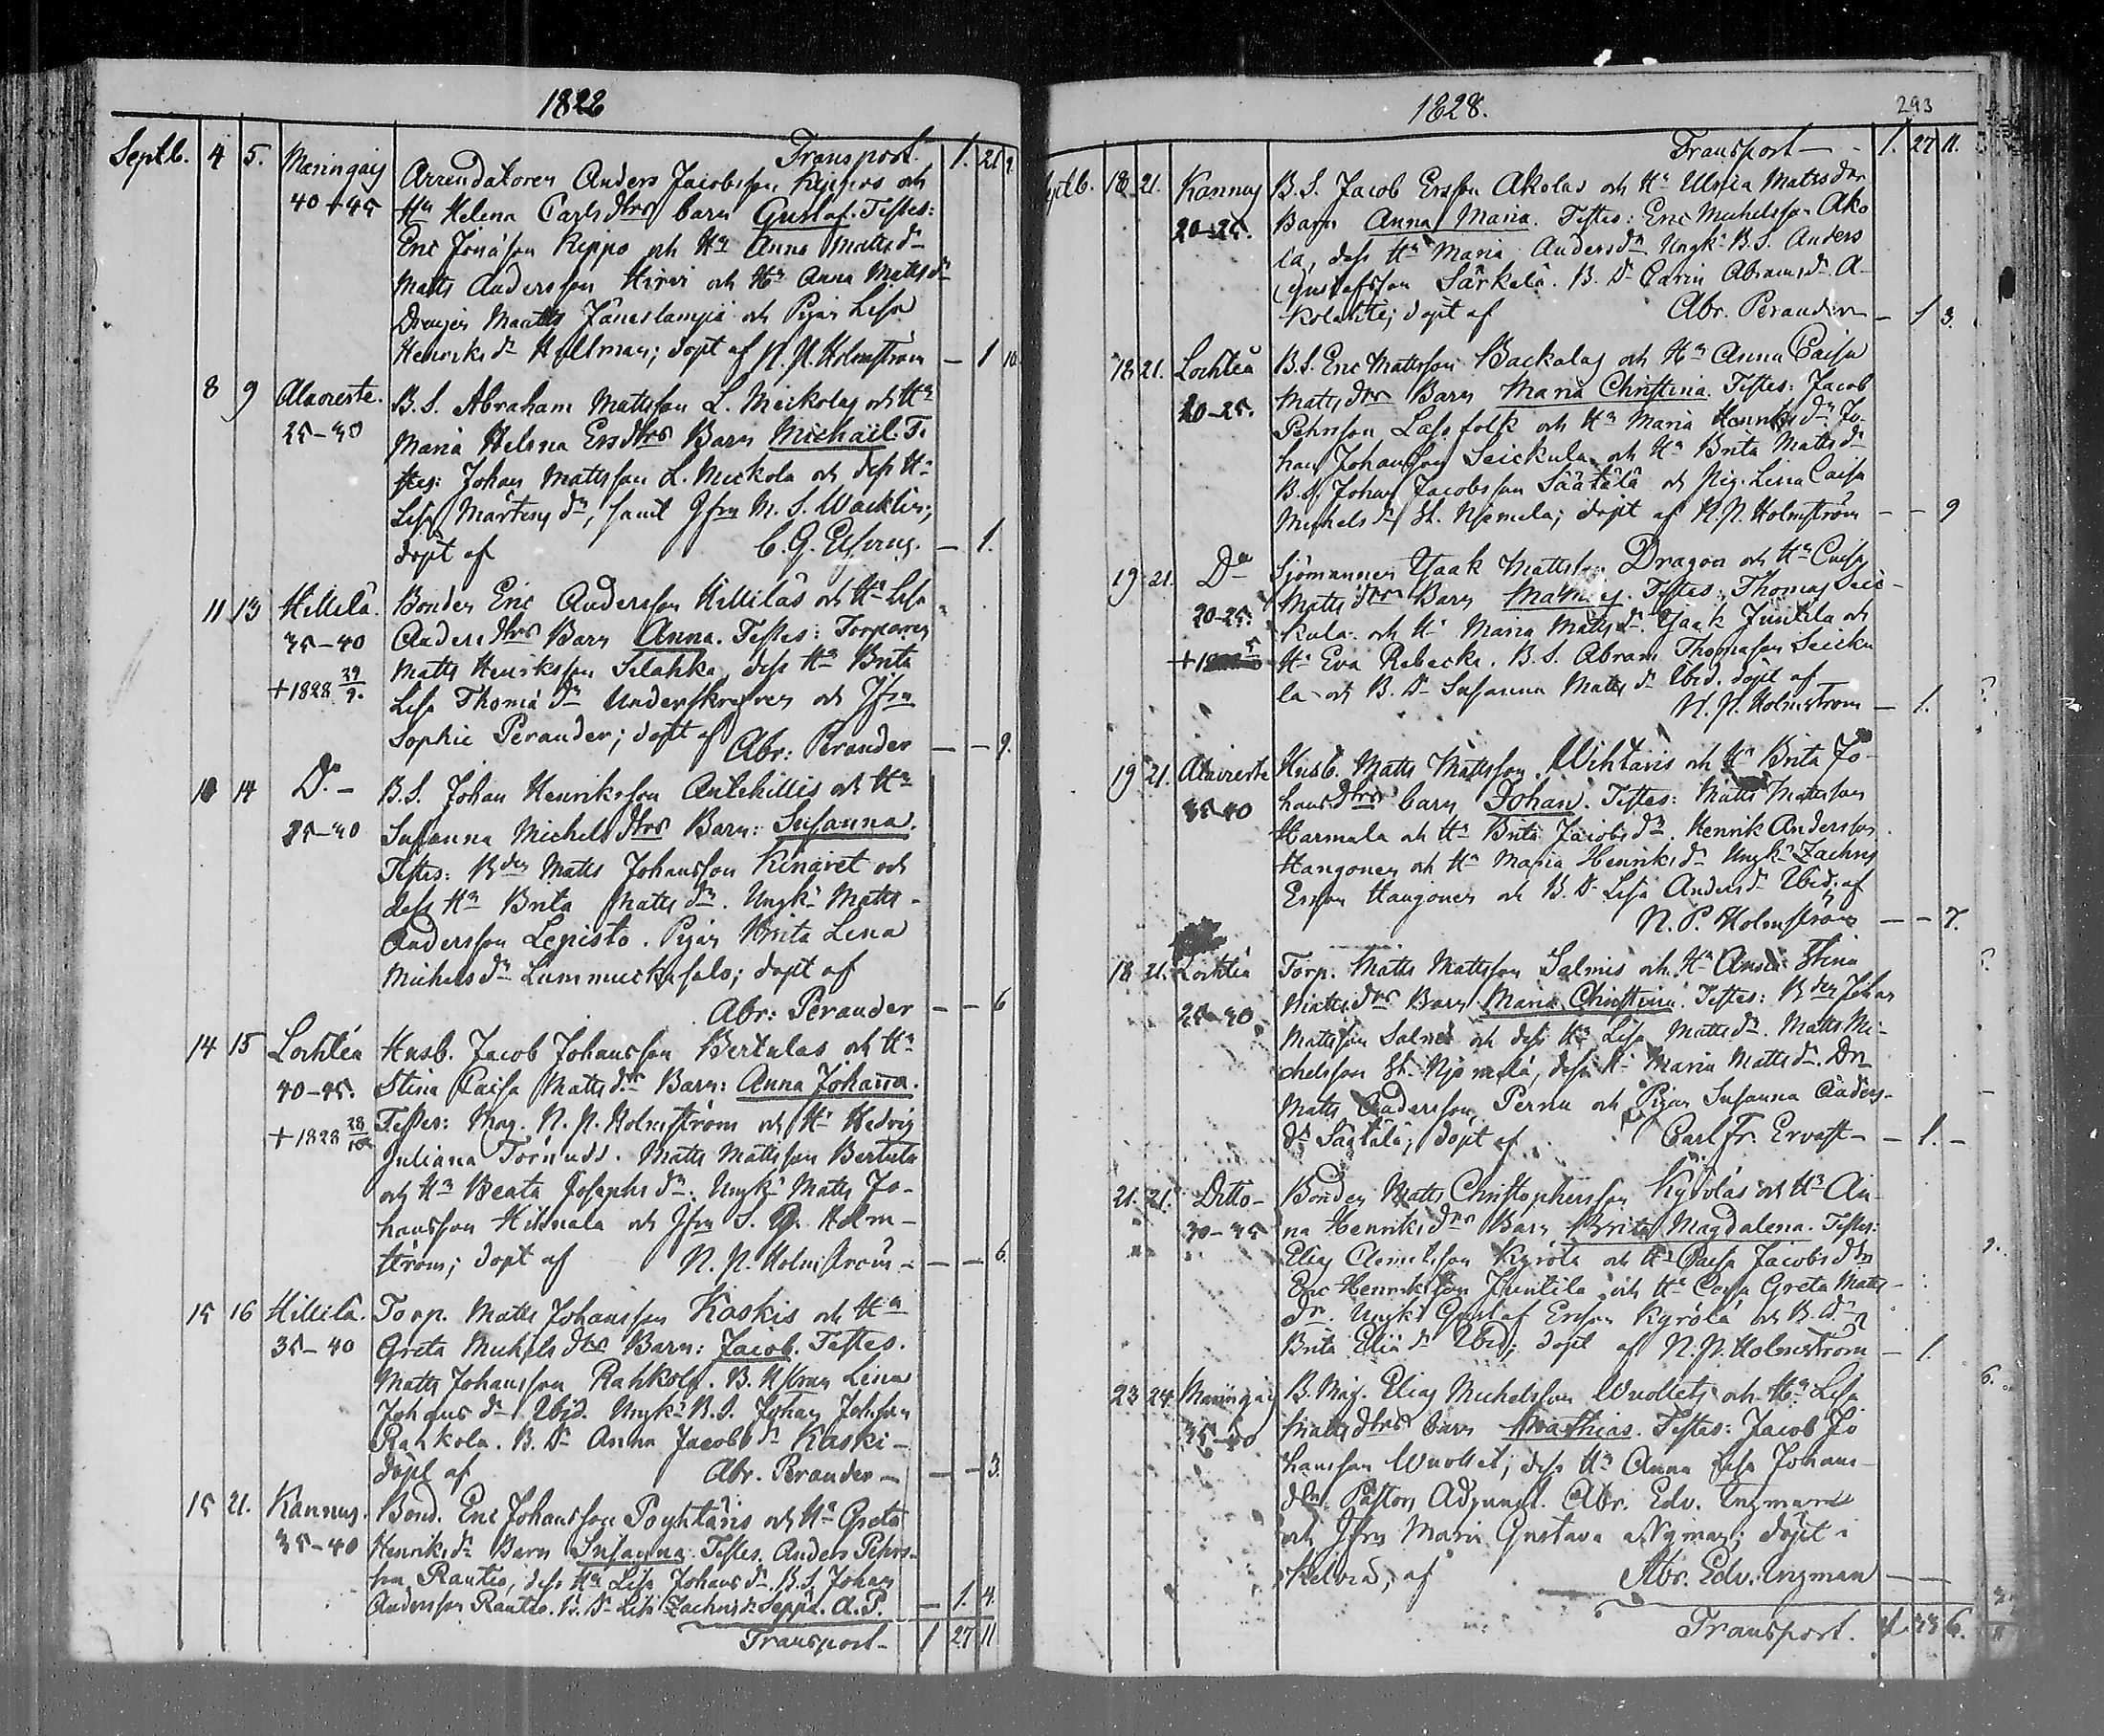 1828
Transport. 1. 21 9.
Septb. 4 5. Maringais Arrendatoren Anders Jacobsson Keippos och
40-45 Hu Helena Carlsdtrs barn Gustaf. Testes:
Eric Jonasson Keippo och Hu Anna Mattsdr
Matts Andersson Hirvi och Hu Anna Mattsdr
Drengen Matts Jäneslampi och Pigan Lisa
Henriksdr Hellman; döpt af N. P. Holmström — 1 10.
8 9 Alaveste. B. S. Abraham Mattsson L. Meckolas och Hu
25-30 Maria Helena Ersdtrs Barn Michaël. Te-
stes: Johan Mattsson L. Meckola och dess Hu
Lisa Mårtensdr, samt Jfru M. S. Wacklin;
döpt af C. G. Elfving. — 1.
11 13 Hillilä. Bonden Eric Andersson Hilliläs och Hu Lisa
35-40 Andersdtrs Barn Anna. Testes: Torparen
+1828 29/9. Matts Henriksson Silahka, dess Hu Brita
Lisa Thomædr Underskrefven och Jfru
Sophie Perander; döpt af Abr: Perander — — 9.
14 Do - B. S. Johan Henriksson Antehillis och Hu
Susanna Michelsdtrs Barn: Susanna.
Testes: Bden Matts Johansson Kinaret och
dess Hu Brita Mattsdr. Ungk. Matts
Andersson Lepisto. Pigan Brita Lena
Michelsdr Lummuckasalo; döpt af
Abr: Perander — — 6
14 15 Lochteå Husb. Jacob Johansson Bertulas och Hu
40-45. Stina Caisa Mattsdr Barn: Anna Johanna.
+1828 28/10 Testes: Mag. N. P. Holmström och Hu Hedvig
Juliana Törnudd. Matts Mattsson Bertula
och Hu Beata Josephsdr. Ungk. Matts Jo-
hansson Hihnala och Jfru S. Holm-
ström; döpt af N. P. Holmström — — 6.
15 16 Hillilä. Torp. Matts Johansson Kaskis och Hu
35-40 Greta Michelsdtrs Barn: Jacob. Testes.
Matts Johansson Rahkola. B. Lena
Johansdr Ibid. Ungk. B. S. Johan Johnson
Rahkola. B. Dr Anna Jacobsdr Kaski-
döpt af Abr. Perander — — — 3.
15 21. Kannus. Bond. Eric Johansson Pöyhtäris och Hu Greta
35-40 Henriksdr Barn Susanna. Testes. Anders Pehrs-
son Rautio, dess Hu Lisa Johansdr. B. S. Johan
Andersson Rautio. B. Dr Lisa Zachrisdr Seppä. A. P. — 1. 4.
Transport- 1 27 11
1828. 293
Transport — 1. 27 11.
Septb. 18 21. Kannus B. S. Jacob Ersson Akolas och Hu Ulrica Mattsdr
20-25. Barn Anna Maria. Testes: Eric Michelsson Ako
la, dess Hu Maria Andersdr Ungk. B. S. Anders
Gustafsson Särkelä. B. Dr Carin Abramsdr A-
kolahti; döpt af Abr. Perander — 1 3.
18 21. Lochteå B. S. Eric Mattsson Backalas och Hu Anna Caisa
20-25. Mattsdtrs Barn Maria Christina. Testes: Jacob
Pehrsson Lassfolk och Hu Maria Henriksdr. Jo-
han Johansson Seickula och Hu Brita Mattsdr
B. S. Johan Jacobsson Säätälä och Pig. Lena Caisa
Michelsdr St. Njemelä; döpt af N. P. Holmström — — 9
19 21. Do Sjömannen Isaak Mattsson Dragon och Hu Caisa
20-25. Mattsdtrs Barn Mathias. Testes: Thomas Seic-
kula och Hu Maria Mattsdr. Isaak Juntila och
Hu Eva Rebecka. B. S. Abram Thomasson Seicku
la och B. Dr Susanna Mattsdr Ibid. döpt af
N. P. Holmström — 1.
19 21. Alaveste Husb. Matts Mattsson Wihtaris och Hu Brita Jo-
35-40 hansdtrs barn Johan. Testes: Matts Mattsson
Harmala och Hu Brita Jacobsdr. Henrik Andersson
Hangonen och Hu Maria Henriksdr Ungk. Zachris
Ersson Hangonen och B. Dr Lisa Andersdr Ibid. af
N. P. Holmström — — 7.
18 21. Lochteå Torp. Matts Mattsson Salmis och Hu Anna Stina
25-30 Mattsdtrs Barn Maria Christina. Testes: Bden Johan
Mattsson Salmi och dess Hu Lisa Mattsdr. Matts Mi-
chelsson St. Njemelä, dess Hu Maria Mattsdr. Dr.
Matts Andersson Pernu och Pigan Susanna Anders-
dr Säätälä; döpt af Carl Fr. Ervast — 1. —
21. 21. Ditto- Bonden Matts Christophersson Kyröläs och Hu An-
30-35 na Henriksdrs Barn Brita Magdalena. Testes:
Elias Clemetsson Kyrölä och Hu Caisa Jacobsdtr
Eric Henriksson Juntila och Hu Caisa Greta Matts-
dr. Ungk. Gustaf Ersson Kyrölä och B. Dr
Brita Eliædr Ibid; döpt af N. P. Holmström — 1.
23 24 Maringais B. Måg. Elias Michelsson Wuollets och Hu Lisa
35-40 Mattsdtrs barn Mathias. Testes: Jacob Jo
hansson Wuollet; dess Hu Anna Lisa Johans-
dtr. Pastors Adjunct. Abr. Edv. Ingman
och Jfru Maria Gustava Nyman; döpt i
Kelviå, af Abr. Edv. Ingman — —
Transport. 1. 33 6.